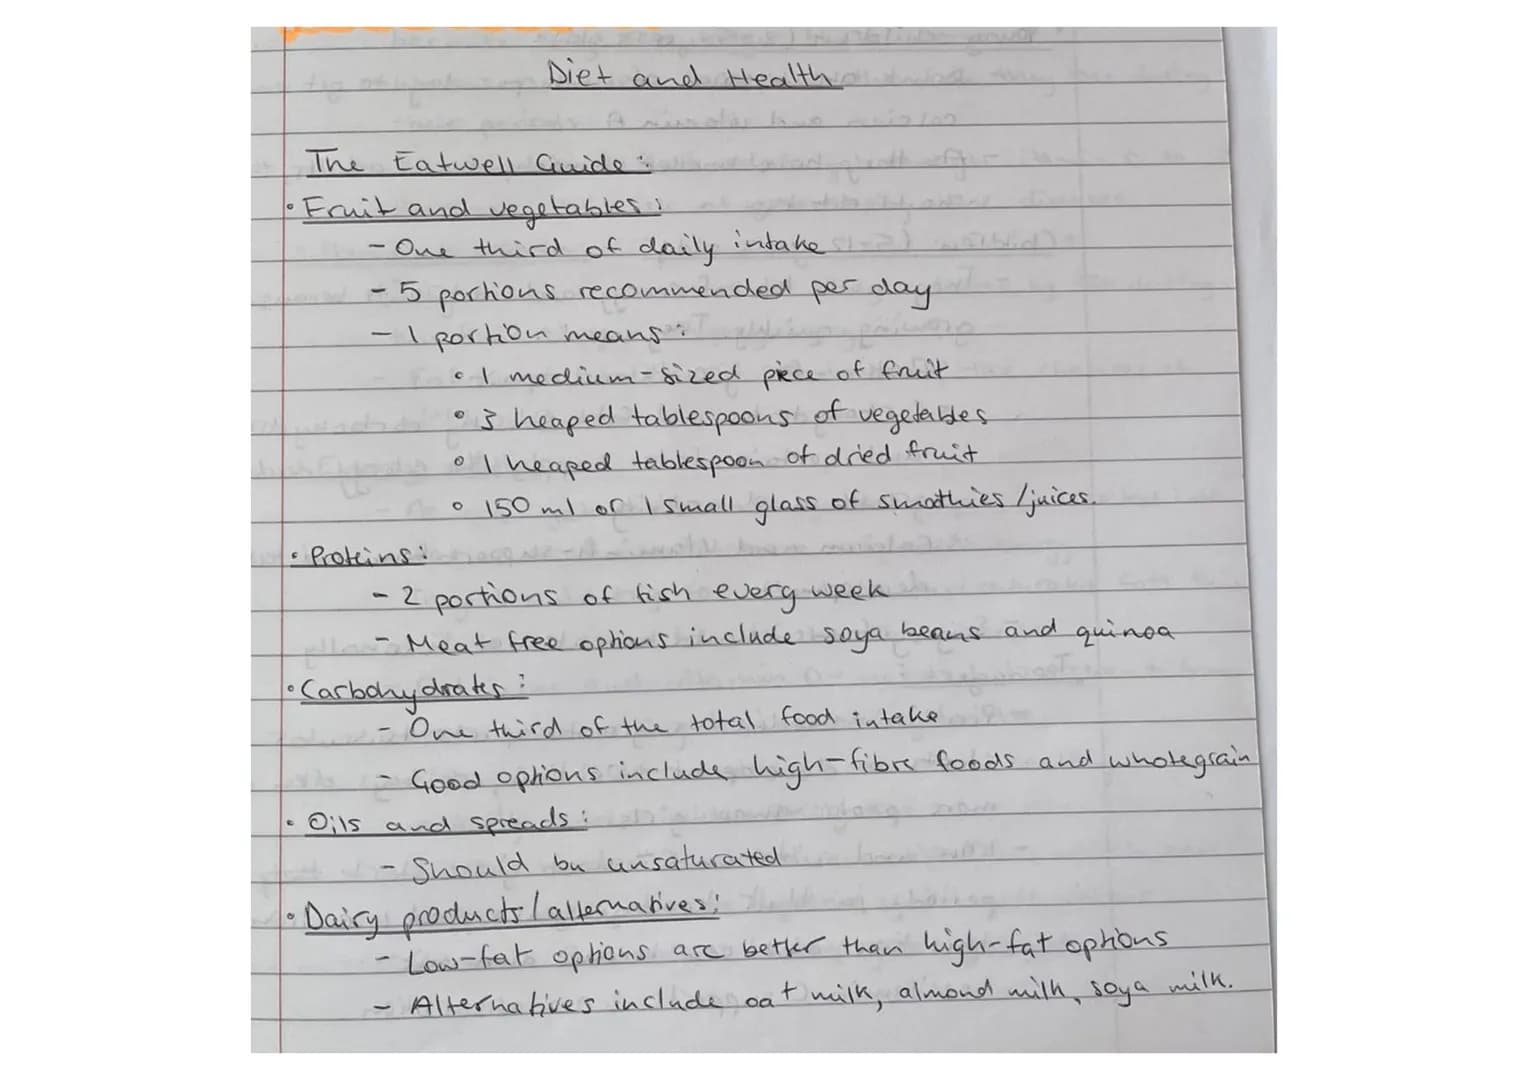 Diet and Health
The Eatwell Guide:
• Fruit and vegetables:
- One third of daily intake
- 5 portions recommended per day
- 1 portion means:
• 1 medium-sized piece of fruit
• 3 heaped tablespoons of vegetables
• 1 heaped tablespoon of dried fruit
• 150 ml or 1 small glass of smothies/juices.
• Proteins:
- 2 portions of fish every week
- Meat free options include soya beans and quinoa
• Carbohydrates:
- One third of the total food intake
- Good options include high-fibre foods and wholegrain
• Oils and spreads:
- Should be unsaturated
• Dairy products/alternatives:
- Low-fat options are better than high-fat options
- Alternatives include oat milk, almond milk, soya milk.